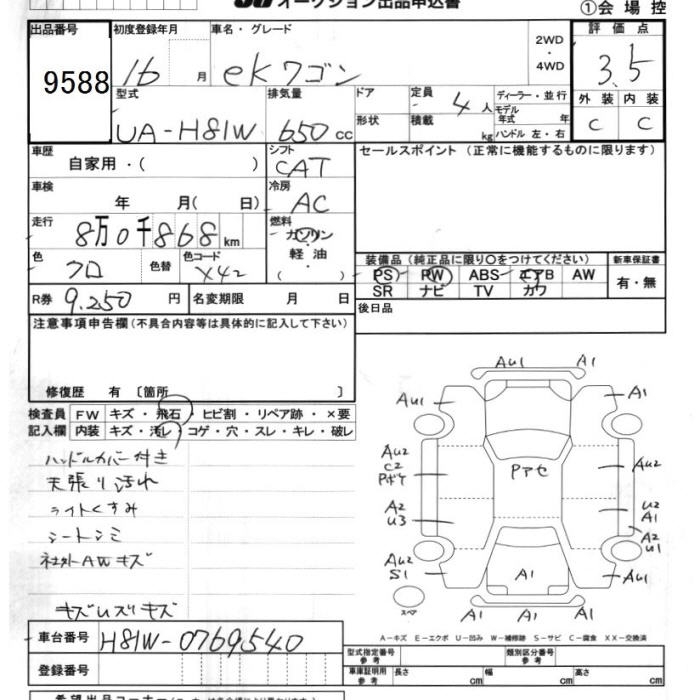 オークション出品申込書
①会場控
出品番号
初度登録年月
車名・グレード
2WD
・
4WD
評価点
9588
16 月
ekワゴン
3.5
型式
排気量
ドア
定員
4人
ディーラー・並行
外装
内装
UA-H81W
650 cc
形状
積載
kg
モデル
年式 年
ハンドル 左・右
C
C
車歴
自家用・( )
シフト
CAT
セールスポイント (正常に機能するものに限ります)
車検
年 月( 日)
冷房
AC
走行
8万0千868km
燃料
ガソリン
軽油
・( )
色
クロ
色替
色コード
X42
装備品 (純正品に限り○をつけてください)
新車保証書
PS
PW
ABS
エアB
AW
有・無
SR
ナビ
TV
カワ
R券
9.250 円
名変期限 月 日
後日品
注意事項申告欄(不具合内容等は具体的に記入して下さい)
修復歴 有〔箇所 〕
検査員
記入欄
FW
キズ・飛石・ヒビ割・リペア跡・×要
内装
キズ・汚レ・コゲ・穴・スレ・キレ・破レ
ハンドルカバー付き
天張り汚れ
ライトくすみ
シートシミ
社外AWキズ
キズUズリキズ
AU1
A1
AU1
A1
AU2
C2
Pボケ
Pアセ
AU2
A2
U3
U2
A1
A2
U1
AU2
S1
A1
AU1
スペア
A1
A-キズ E-エクボ U-凹み W-補修跡 S-サビ C-腐食 XX-交換済
車台番号
H81W-0769540
型式指定番号
参考
類別区分番号
参考
登録番号
車庫証明用
参考
長さ cm
幅 cm
高さ cm
希望出品コーナー